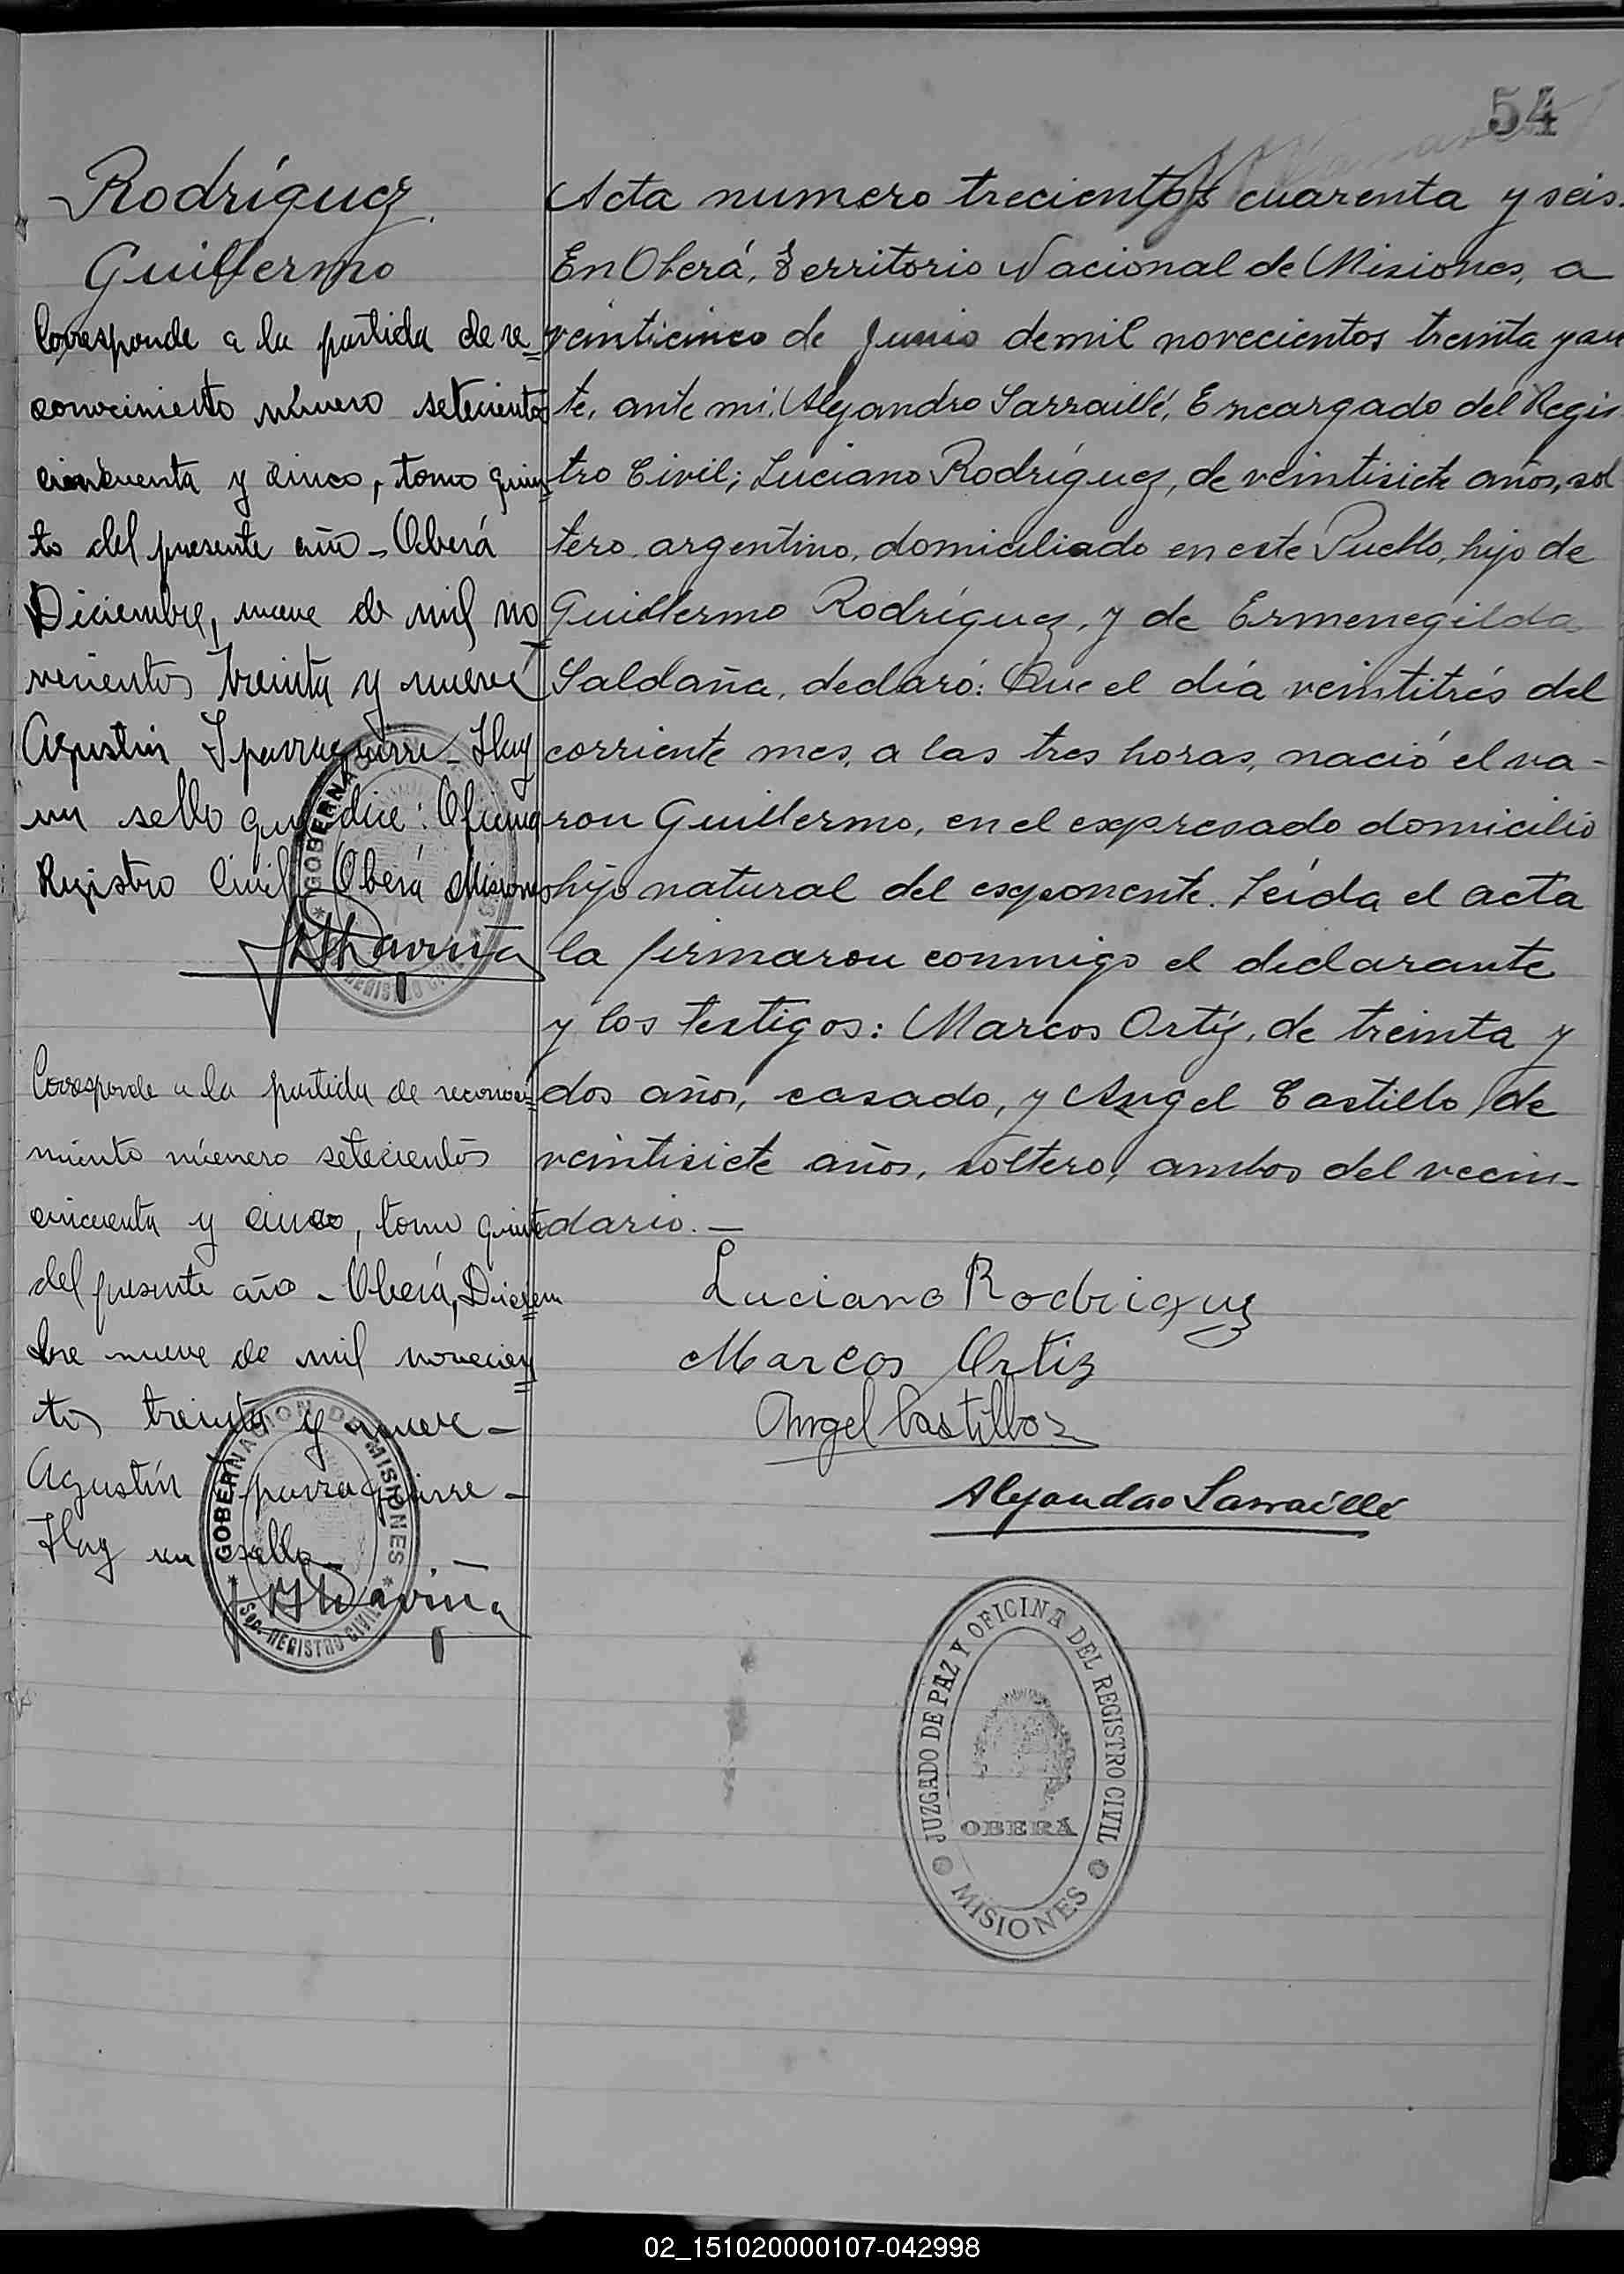 54
Rodríguez
Guillermo
Corresponde a la partida de re=
conocimiento número setecientos
cincuenta y cinco, tomo quin=
to del presente año - Oberá
Diciembre, nueve de mil no
vecientos treinta y nueve
Agustín Iparraguirre - Hay
un sello que dice: Oficina
Registro Civil Oberá Misiones
GOBERNA
REGISTRO CIVIL
Corresponde a la partida de reconoci=
miento número setecientos
cincuenta y cinco, tomo quinto
del presente año - Oberá, Diciem
bre nueve de mil novecien
tos treinta y nueve -
Agustín Iparraguirre -
Hay un sello -
GOBERNACION DE MISIONES
Sec. REGISTRO CIVIL
Acta numero trecientos cuarenta y seis.
En Oberá, Territorio Nacional de Misiones, a
veinticinco de Junio de mil novecientos treinta y sie
te, ante mí, Alejandro Sarraillé, Encargado del Regis
tro Civil; Luciano Rodríguez, de veintisiete años, sol
tero, argentino, domiciliado en este Pueblo, hijo de
Guillermo Rodríguez, y de Ermenegilda
Saldaña, declaró: Que el día veintitrés del
corriente mes, a las tres horas, nació el va-
ron Guillermo, en el expresado domicilio
hijo natural del exponente. Leída el acta
la firmaron conmigo el declarante
y los testigos: Marcos Ortíz, de treinta y
dos años, casado, y Angel Castillo, de
veintisiete años, soltero, ambos del vecin-
dario. -
Luciano Rodriguez
Marcos Ortiz
Angel Castillo
Alejandro Sarraillé
JUZGADO DE PAZ Y OFICINA DEL REGISTRO CIVIL
OBERÁ
MISIONES
02_151020000107-042998